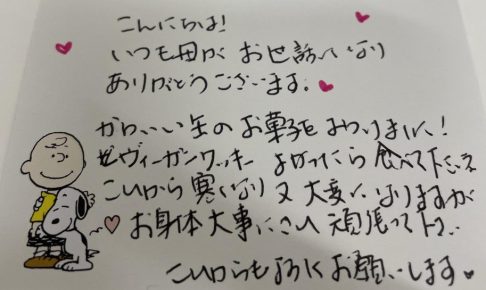 こんにちは!
いつも母が お世話になり
ありがとうございます。
かわいい缶のお菓子を みつけました!
ヴィーガンクッキー よかったら 食べて下さい
これから 寒くなり 又 大変に なりますが
お身体 大事にされ 頑張って下さい
これからもよろしくお願いします